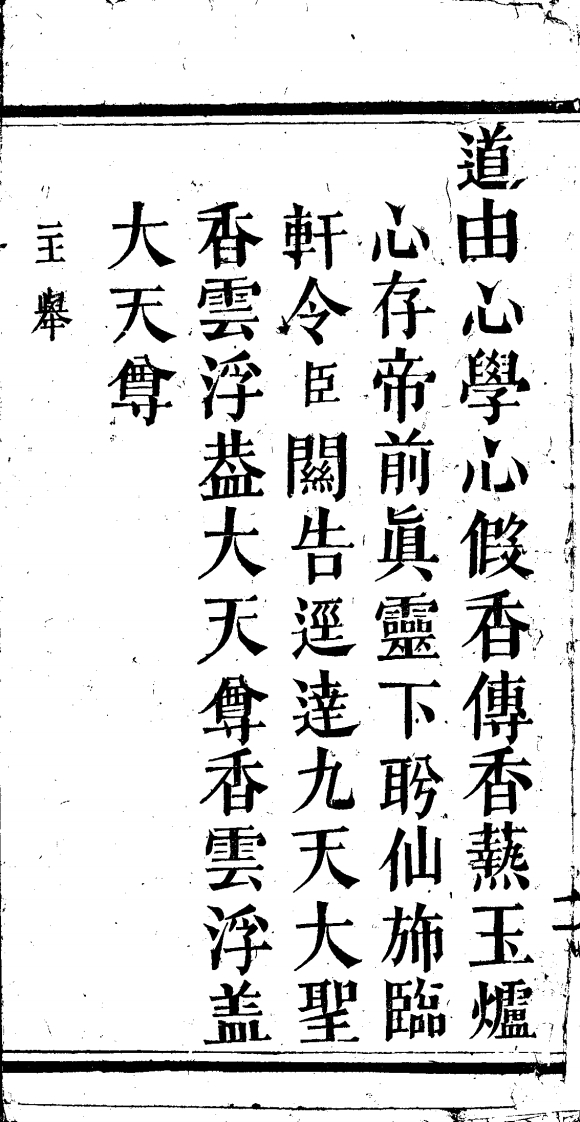 道由心學心假香傳香爇玉爐
心存帝前眞靈下盻仙斾臨
軒令臣關告逕達九天大聖
香雲浮葢大天尊香雲浮盖
大天尊
主舉